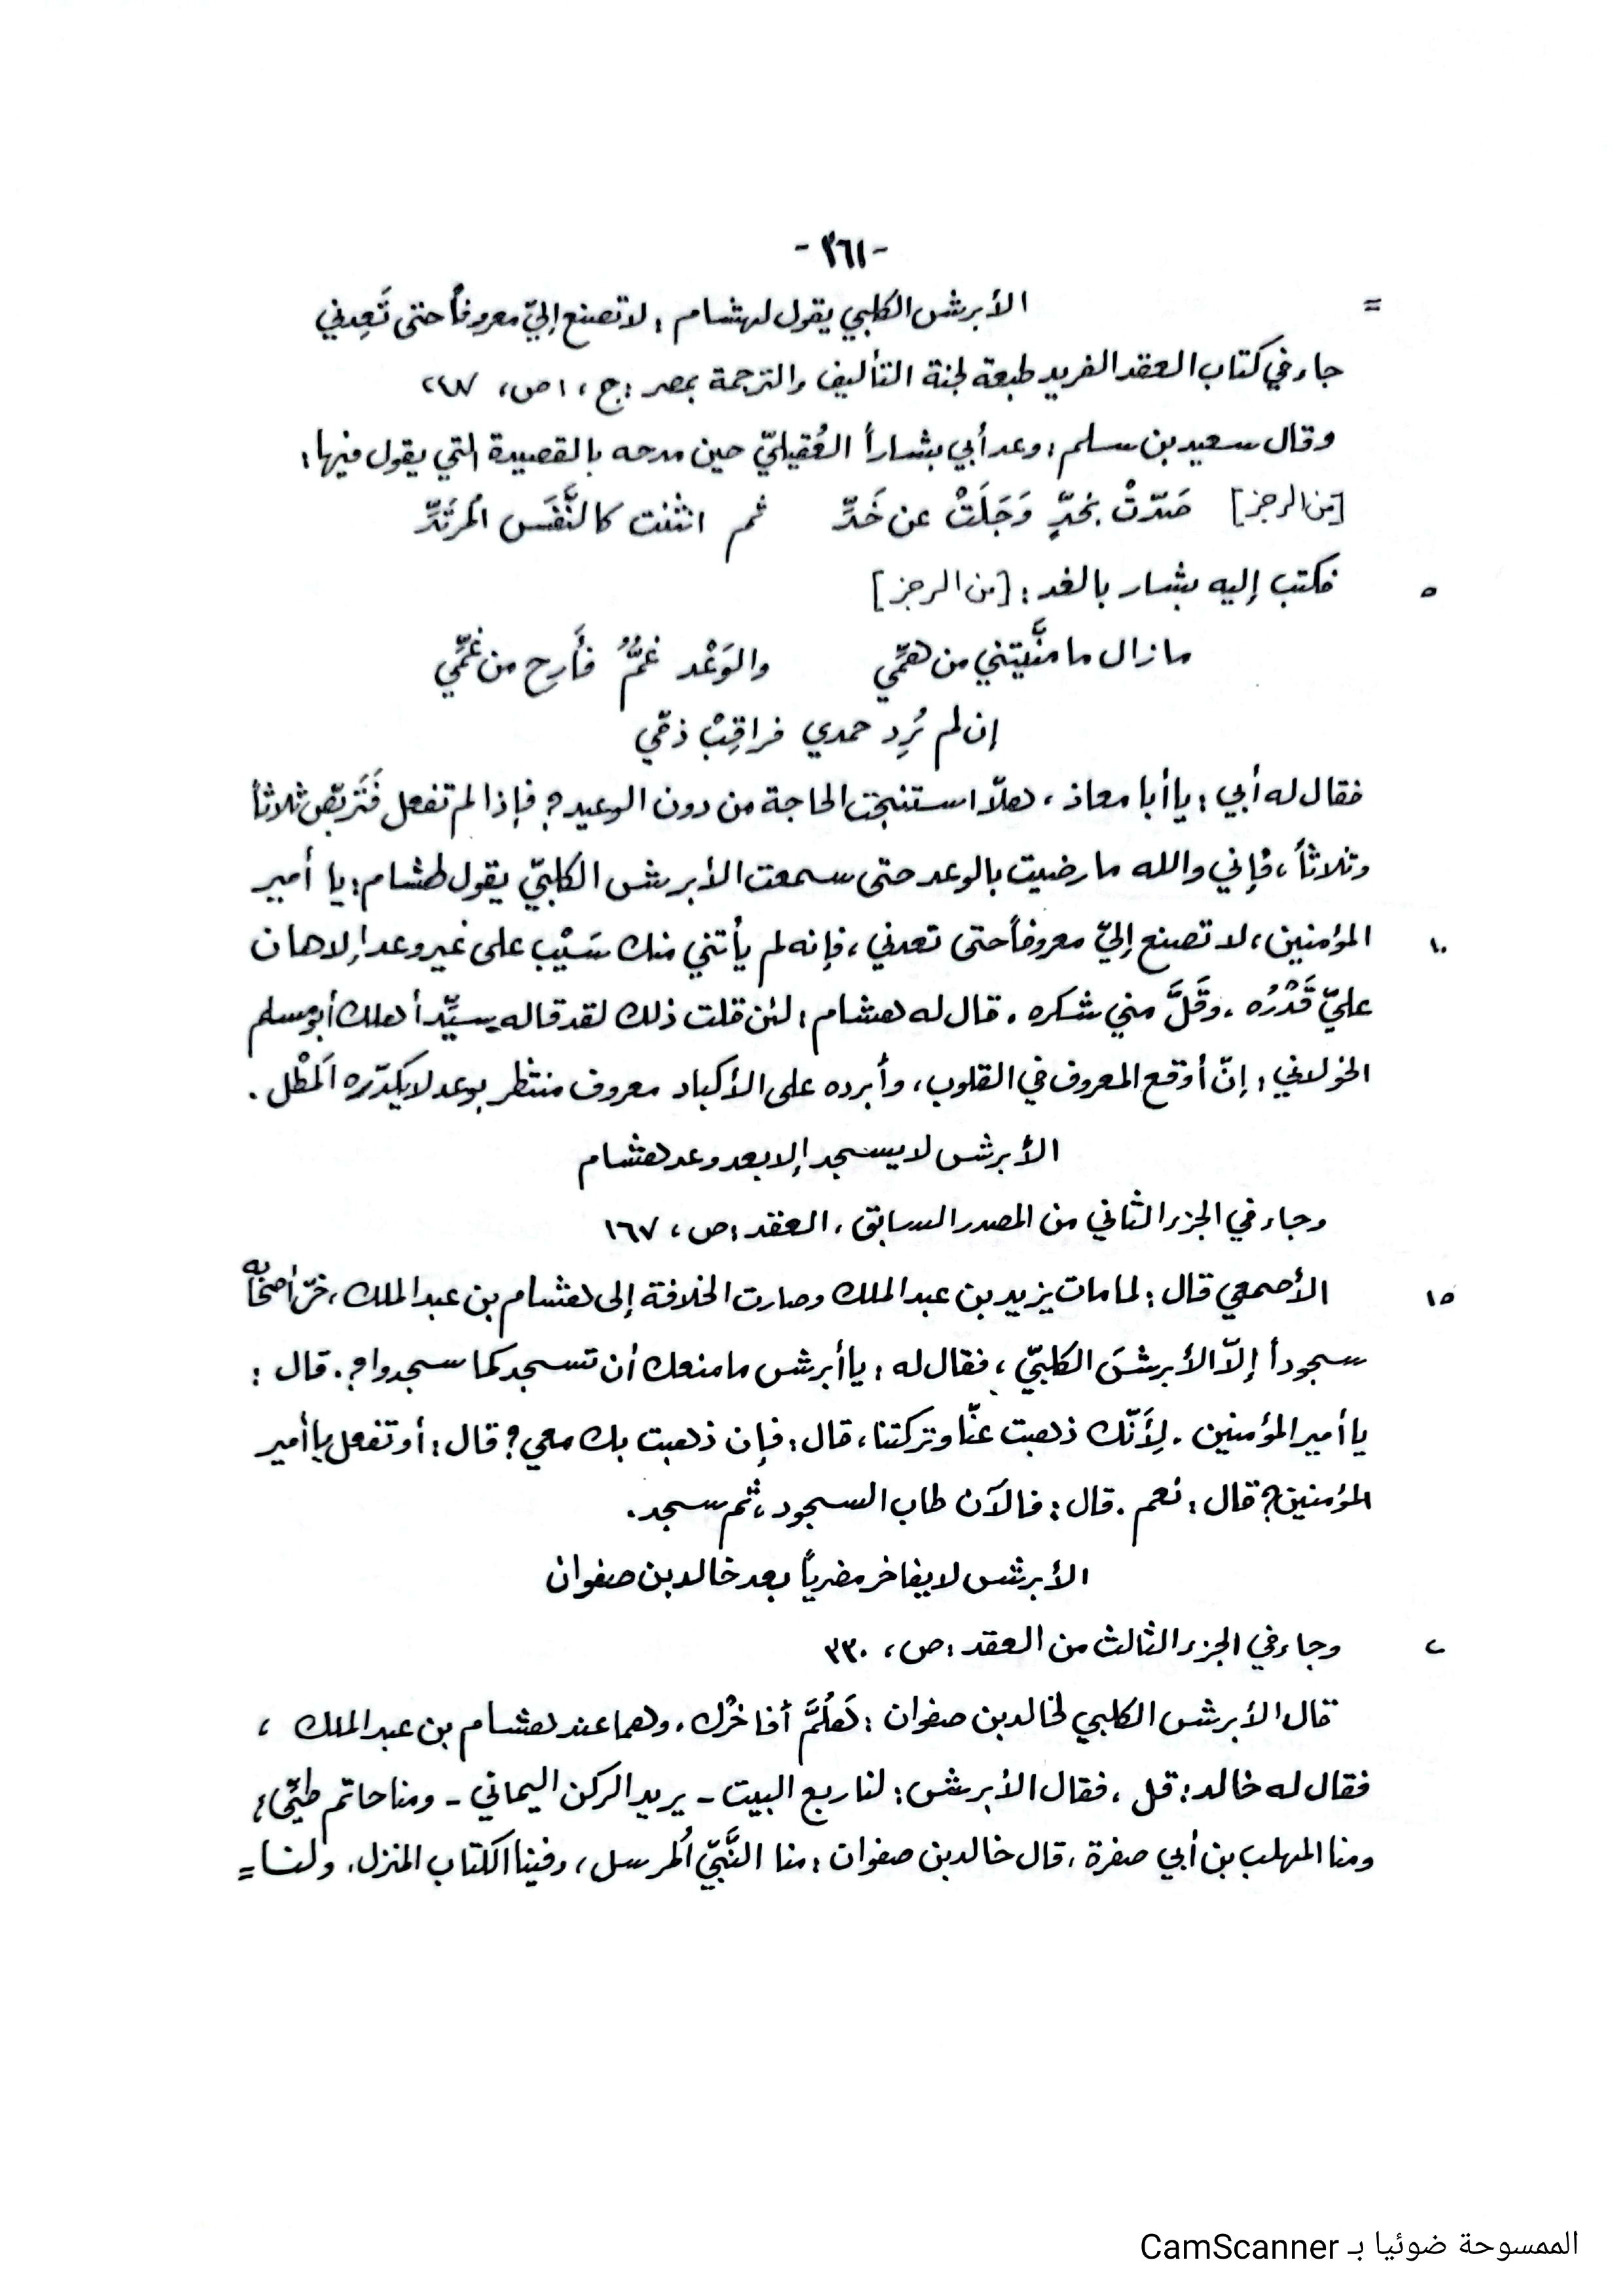 -٣٦١-
= الأبرش الكلبي يقول لهشام : لا تصنع إليّ معروفاً حتى تَعِدني
جاء في كتاب العقد الفريد طبعة لجنة التأليف والترجمة بمصر : ج ، ١ ص ، ٢٤٧
وقال سعيد بن سلم : وعد أبي بشاراً العُقيليّ حين مدحه بالقصيدة التي يقول فيها :
[من الرجز] صَدّتْ بخدٍّ وَجَلَتْ عن خَدِّ ثم انثنت كالنَّفَس المُرتَدِّ
٥ فكتب إليه بشار بالغد : [من الرجز]
ما زال ما منَّيتني من همِّي والوَعْد غمٌّ فأَرِح من غمِّي
إن لم تُرِد حمدي فراقِبْ ذمّي
فقال له أبي : يا أبا معاذ ، هلاّ استنجحت الحاجة من دون الوعيد ؟ فإذا لم تفعل فَتَربّص ثلاثاً
وثلاثاً ، فإني والله ما رضيت بالوعد حتى سمعت الأبرش الكلبيّ يقول لهشام : يا أمير
١٠ المؤمنين ، لا تصنع إليّ معروفاً حتى تعدني ، فإنه لم يأتني منك سَيْب على غير وعد إلا هان
عليّ قَدْرُه ، وقَلَّ مني شكره . قال له هشام : لئن قلت ذلك لقد قاله سيِّد أهلك أبو مسلم
الخولاني : إنّ أوقع المعروف في القلوب ، وأبرده على الأكباد معروف منتظر بوعد لا يكدّره المَطْل .
الأبرش لا يسجد إلا بعد وعد هشام
وجاء في الجزء الثاني من المصدر السابق ، العقد : ص ، ١٦٧
١٥ الأصمعي قال : لما مات يزيد بن عبد الملك وصارت الخلافة إلى هشام بن عبد الملك ، خرّ أصحابه
سجوداً إلاّ الأبرشَ الكلبيّ ، فقال له : يا أبرش ما منعك أن تسجد كما سجدوا ؟ . قال :
يا أمير المؤمنين . لِأَنّك ذهبت عنّا وتركتنا ، قال : فإن ذهبت بك معي ؟ قال : أو تفعل يا أمير
المؤمنين ؟ قال : نعم . قال : فالآن طاب السجود ، ثم سجد .
الأبرش لا يفاخر مضرياً بعد خالد بن صفوان
٢ وجاء في الجزء الثالث من العقد : ص ، ٣٣٠
قال الأبرش الكلبي لخالد بن صفوان : هَلُمَّ أفاخرْك ، وهما عند هشام بن عبد الملك ،
فقال له خالد : قل ، فقال الأبرش : لنا ربع البيت - يريد الركن اليماني - ومنا حاتم طيِّىء ،
ومنا المهلب بن أبي صفرة ، قال خالد بن صفوان : منا النَّبيّ المُرسل ، وفينا الكتاب المنزل ، ولنا =
الممسوحة ضوئيا بـ CamScanner